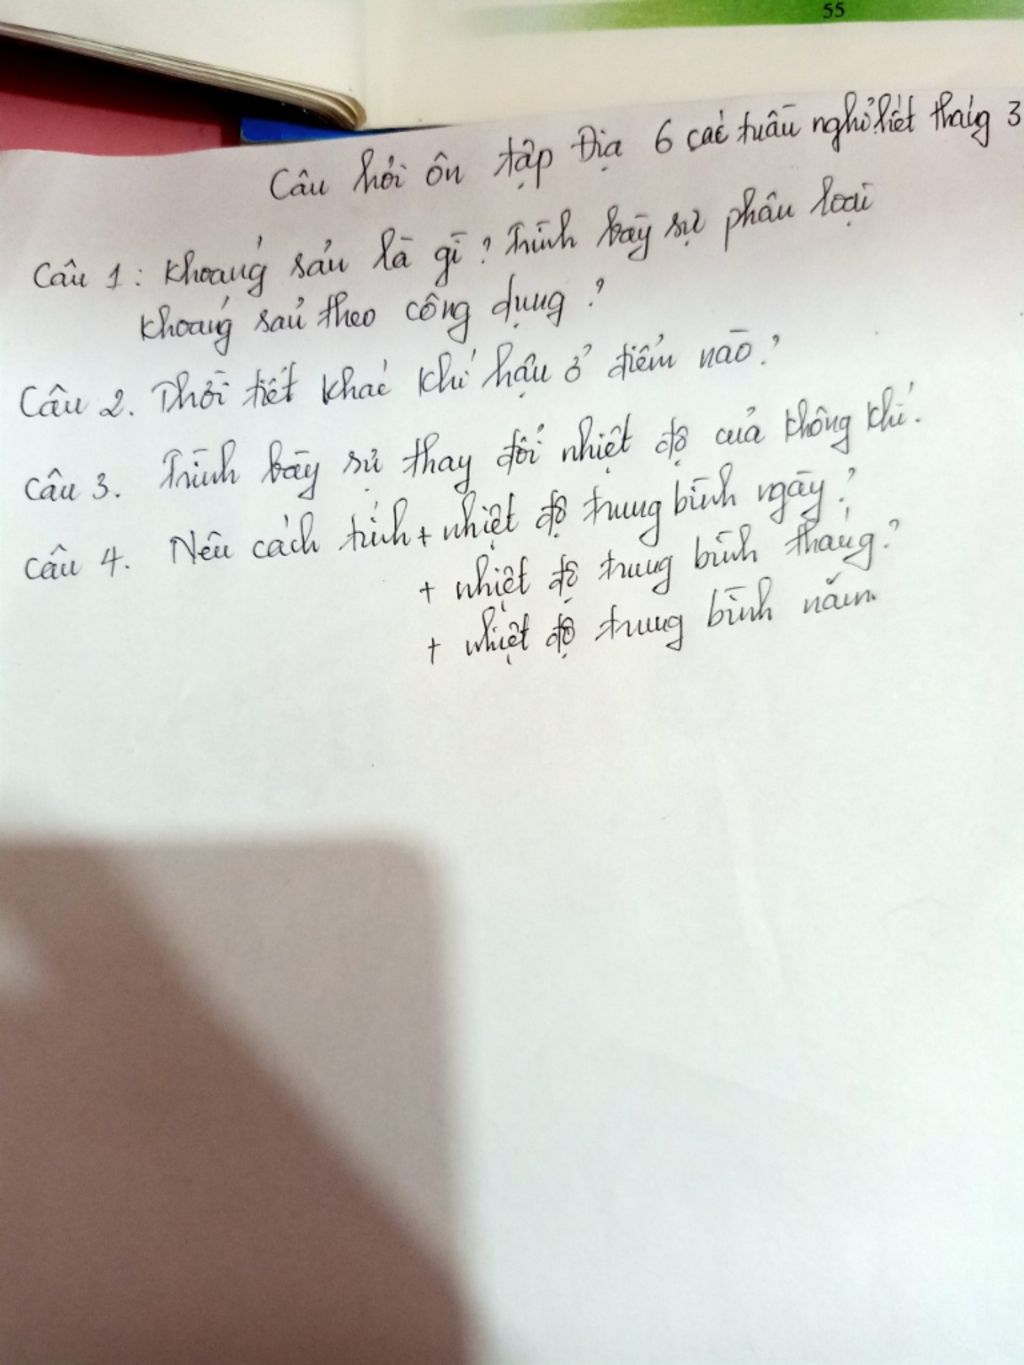 55
Câu hỏi ôn tập Địa 6 các tuần nghỉ hết tháng 3
Câu 1: Khoáng sản là gì? Trình bày sự phân loại
khoáng sản theo công dụng?
Câu 2. Thời tiết khác khí hậu ở điểm nào?
Câu 3. Trình bày sự thay đổi nhiệt độ của không khí.
Câu 4. Nêu cách tính + nhiệt độ trung bình ngày?
+ nhiệt độ trung bình tháng?
+ nhiệt độ trung bình năm.